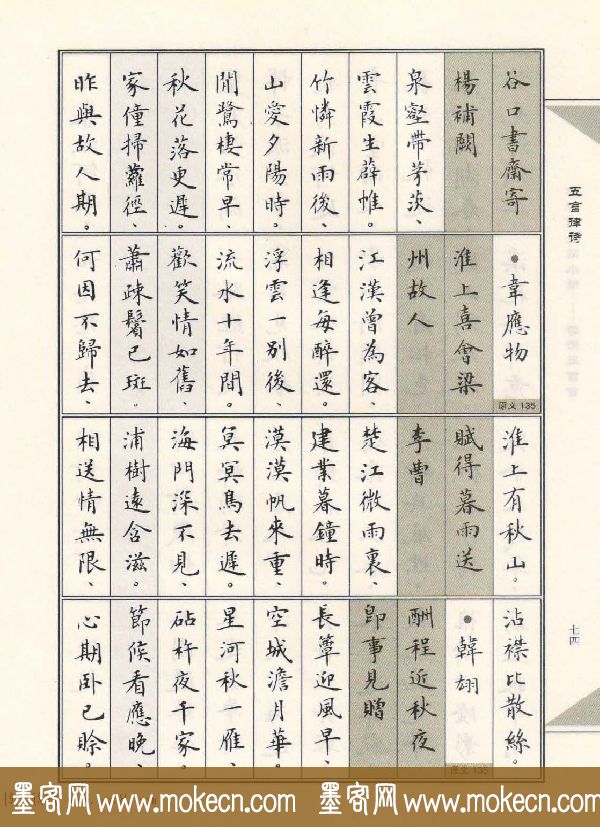 五言律詩
谷口書齋寄
楊補闕
泉壑帶茅茨、
雲霞生薜帷。
竹憐新雨後、
山愛夕陽時。
閒鷺棲常早、
秋花落更遲。
家僮掃蘿徑、
昨與故人期。
●韋應物
原文 135
淮上喜會梁
州故人
江漢曾為客、
相逢每醉還。
浮雲一別後、
流水十年間。
歡笑情如舊、
蕭疎鬢已斑。
何因不歸去、
淮上有秋山。
賦得暮雨送
李曹
楚江微雨裏、
建業暮鐘時。
漠漠帆來重、
冥冥鳥去遲。
海門深不見、
浦樹遠含滋。
相送情無限、
沾襟比散絲。
●韓翃
原文 135
酬程近秋夜
即事見贈
長簟迎風早、
空城澹月華。
星河秋一雁、
砧杵夜千家。
節候看應晚、
心期臥已賒。
七四
墨客网 www.mokecn.com 墨客网 www.mokecn.com